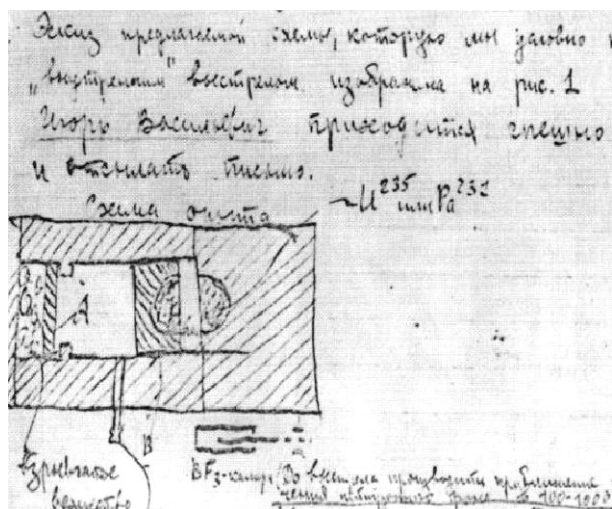 Эскиз предлагаемой схемы, которую мы условно
"внутренним" выстрелом изображена на рис. 1
Игорь Васильевич приходится спешно
и отсылать письмо.
Схема опыта
~U²³⁵ или Pa²³¹
A
B
взрывчатое
вещество
BF₃-камера До выстрела производить
фона в 100-1000